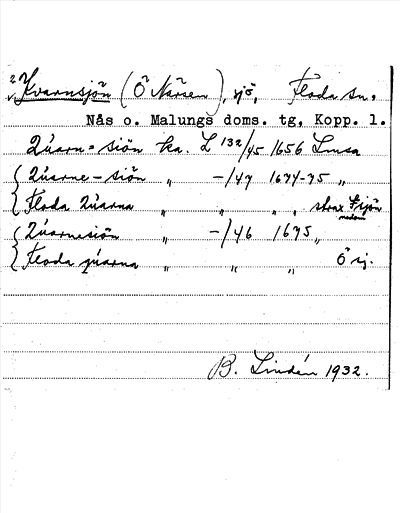 2 Kvarnsjön (Ö Närsen), sjö, Floda sn.
Nås o. Malungs doms. tg, Kopp. l.
Quarn=siön ka. L 132/45 1656 Lmsa
Quarne-siön " -/47 1674-75 "
Floda Quarna " " " , strax nedom
Quarnesiön " -/46 1675 "
Floda quarna " " " Ö sj.
B. Lindén 1932.